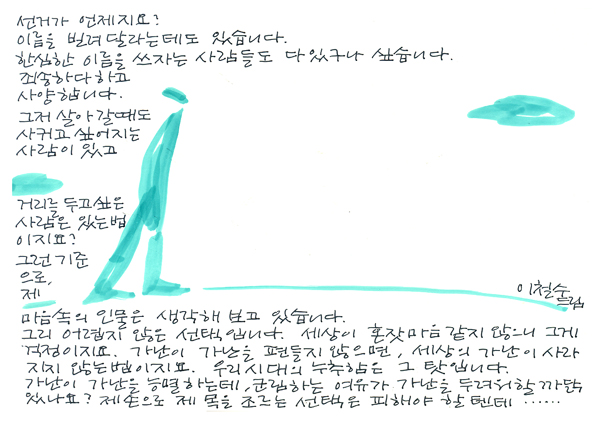 선거가 언제지요?
이름을 빌려 달라는데도 있습니다.
한심한 이름을 쓰자는 사람들도 다 있구나 싶습니다.
죄송하다 하고
사양합니다.
그저 살아갈 때도
사귀고 싶어지는
사람이 있고
거리를 두고 싶은
사람은 있는 법
이지요?
그런 기준
으로,
제
이철수
드림
마음속의 인물은 생각해 보고 있습니다.
그리 어렵지 않은 선택입니다. 세상이 혼잣마음 같지 않으니 그게
걱정이지요. 가난이 가난을 편들지 않으면, 세상의 가난이 사라
지지 않는 법이지요. 우리시대의 누추함은 그 탓입니다.
가난이 가난을 증멸하는데, 군림하는 여유가 가난을 두려워할 까닭
있나요? 제 손으로 제 목을 조르는 선택은 피해야 할 텐데 ……